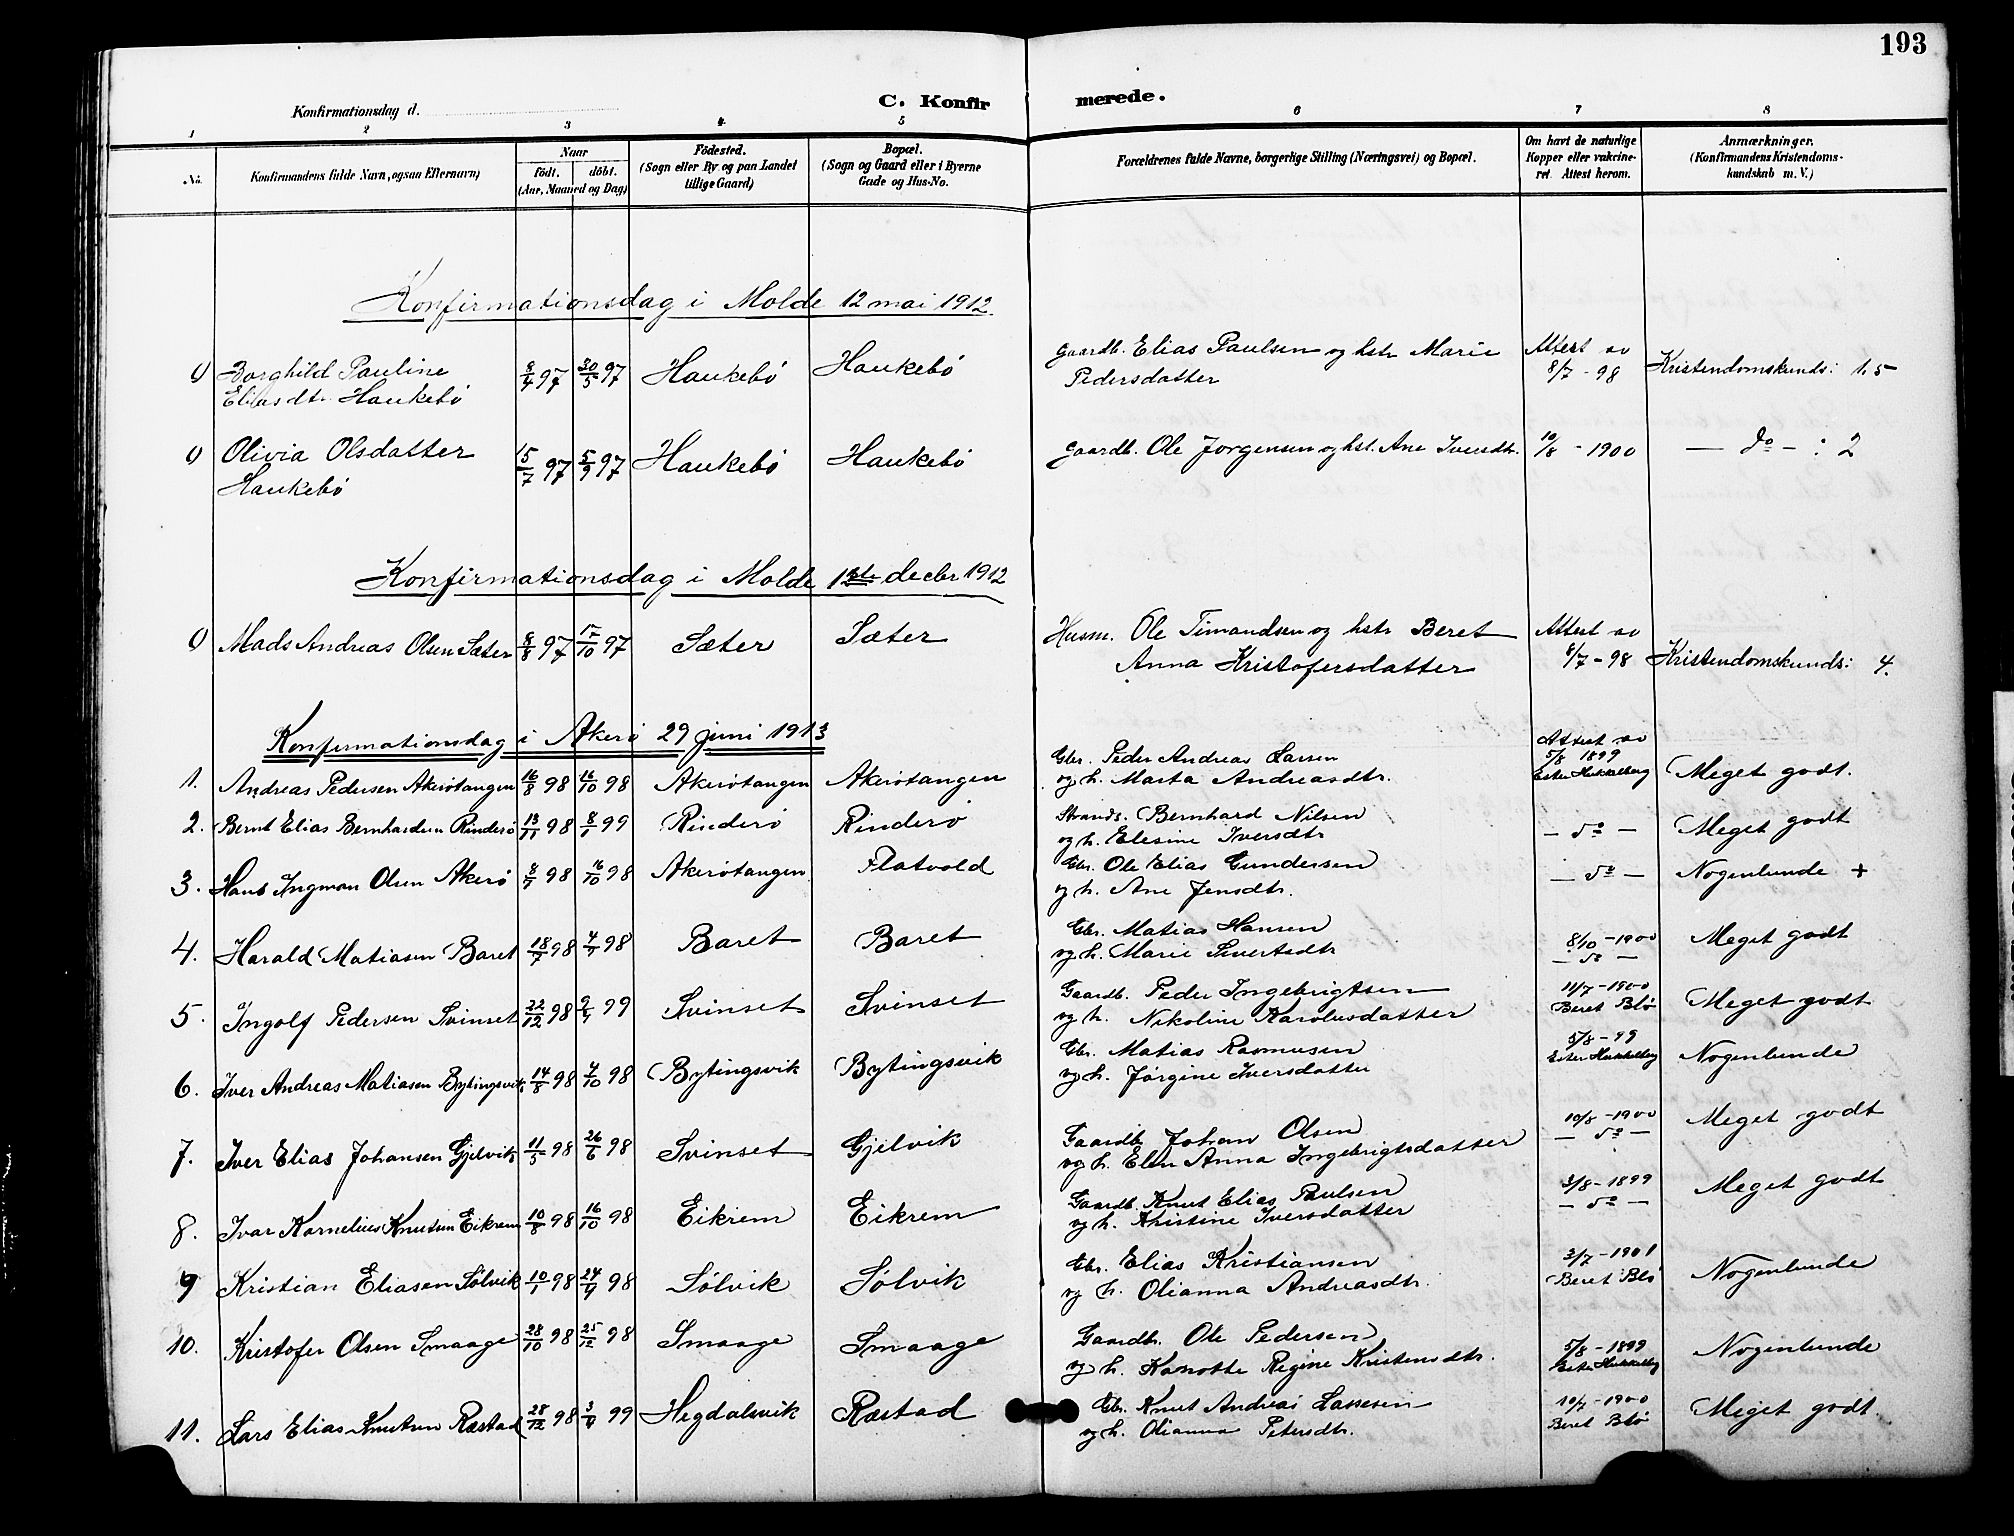 193
Konfirmationsdag d.
C. Konfirmerede.
1 2 3 4. 5 6 7 8
No.
Konfirmandens fulde Navn, ogsaa Efternavn)
Naar
födt. döbt.
(Aar, Maaned og Dag)
Födested.
(Sogn eller By og paa Landet
tillige Gaard)
Bopæl.
(Sogn og Gaard eller i Byerne
Gade og Hus-No.
Forældrenes fulde Navne, borgerlige Stilling (Næringsvei) og Bopæl.
Om havt de naturlige
Kopper eller vakcine-
ret. Attest herom.
Anmærkninger.
(Konfirmandens Kristendoms-
kundskab m. V.)
Konfirmationsdag i Molde 12 mai 1912.
Borghild Pauline 8/4 97 30/5 97 Haukebö Haukebö Gaardb. Elias Paulsen og hstr Marie Attest av
Eliasdtr. Haukebö Pedersdatter 8/7 - 98 Kristendomskunds: 1.5
Olivia Olsdatter 15/7 97 5/9 97 Haukebö Haukebö Gaardb. Ole Jorgensen og hst. Ane Iversdtr. 10/8 - 1900 — do — : 2
Haukebö
Konfirmationsdag i Molde 1ste decbr 1912
Mads Andreas Olsen Sæter 8/8 97 17/10 97 Sæter Sæter Husm. Ole Timandsen og hstr Beret Attest av
Anna Kristofersdatter 8/7 - 98 Kristendomskunds: 4.
Konfirmationsdag i Akerö 29 juni 1913
1. Andreas Pedersen Akerötangen 16/8 98 16/10 98 Akerötangen Akerötangen Gbr. Peder Andreas Larsen Attest av 5/8 1899 Meget godt.
og h. Marta Andreasdtr. Ester Hukkelberg
2. Bernt Elias Bernhardsen Rinderö 13/11 98 8/1 99 Rinderö Rinderö Strands. Bernhard Nilsen — do — Meget godt
og h. Elesine Iversdtr
3. Hans Ingman Olsen Akerö 98 16/10 98 Akerötangen Flatvold Gbr. Ole Elias Gundersen — do — Nogenlunde +
og h. Ane Jensdtr.
4. Harald Matiasen Baret 18/7 98 98 Baret Baret Gbr. Matias Hansen 8/10 - 1900 Meget godt
og h. Marie Sivertsdtr — do —
5. Ingolf Pedersen Svinset 22/12 98 99 Svinset Svinset Gaardb. Peder Ingebrigtsen 11/7 - 1900 Meget godt
og h. Nikoline Karolusdatter Beret Blö
6. Iver Andreas Matiasen Bytingsvik 14/8 98 98 Bytingsvik Bytingsvik Gbr. Matias Rasmusen 5/8 - 99 Nogenlunde
og h. Jörgine Iversdatter Ester Hukkelberg
7. Iver Elias Johansen Gjelvik 11/5 98 26/6 98 Svinset Gjelvik Gaardb. Johan Olsen 10/8 - 1900 Meget godt
og h. Elen Anna Ingebrigtsdatter — do —
8. Ivar Kornelius Knutsen Eikrem 10/8 98 16/10 98 Eikrem Eikrem Gaardb. Knut Elias Paulsen 3/8 - 1899 Meget godt
og h. Kristine Iversdatter — do —
9 Kristian Eliasen Sölvik 10/1 98 24/4 98 Sölvik Sölvik Gbr. Elias Kristiansen 3/7 - 1901 Nogenlunde
og h. Olianna Andreasdtr. Beret Blö
10. Kristofer Olsen Smaage 28/10 98 25/12 98 Smaage Smaage Gaardbr. Ole Pedersen 5/8 - 1899 Nogenlunde
og h. Regine Kristensdtr. Ester Hukkelberg
11. Lars Elias Knutsen Ræstad 28/12 98 3/4 99 Hegdalsvik Ræstad Gbr. Knut Andreas Lassesen 10/7 - 1900 Meget godt.
og h. Olianna Petersdtr. Beret Blö